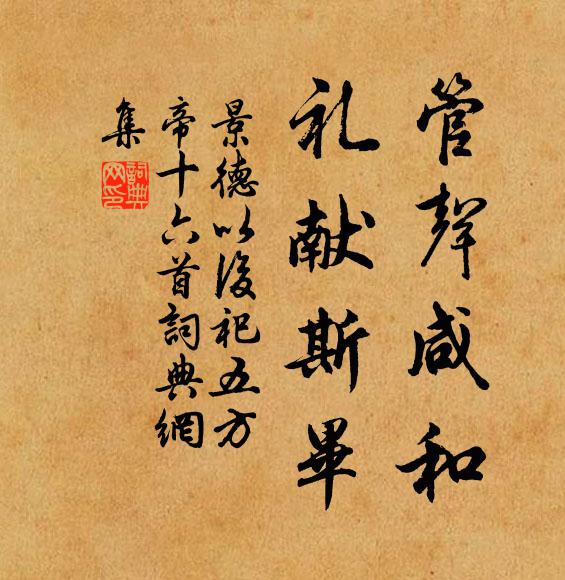 管聲咸和
礼献斯畢
景德以後祀五方
帝十六首詞典網
集
詞典
网印